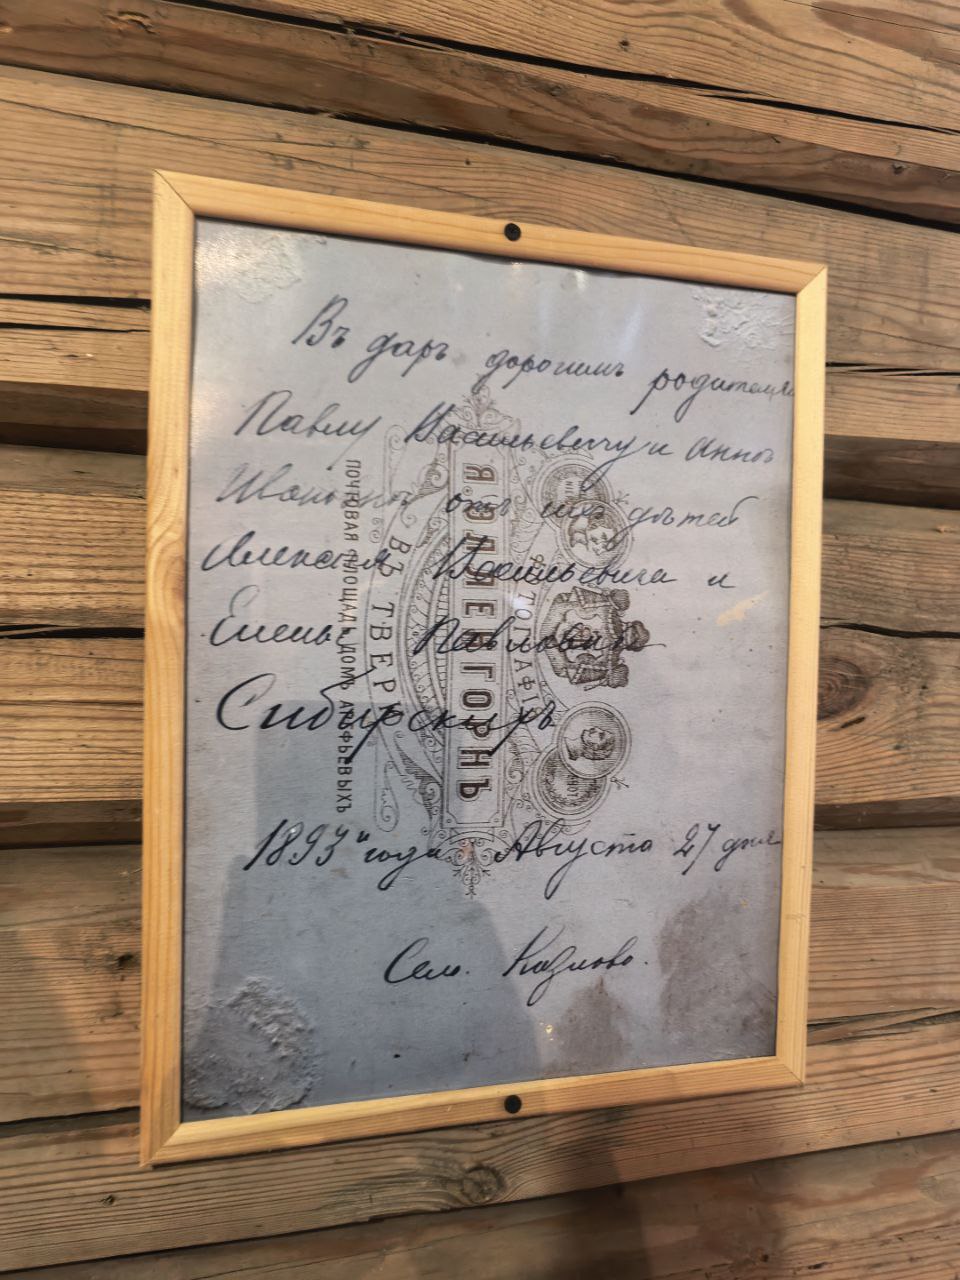 Въ даръ дорогимъ родителямъ
Павлу Васильевичу и Аннѣ
отъ ихъ дѣтей
Алексѣя Васильевича и
Елены Павловны
Сибирскихъ
1893 года Августа 27 дня
Село. Козлово.
Я. ЭЛЛЕНГОРНЪ
ФОТОГРАФІЯ
ВЪ ТВЕРИ
ПОЧТОВАЯ ПЛОЩАДЬ ДОМЪ АРЕФЬЕВЫХЪ